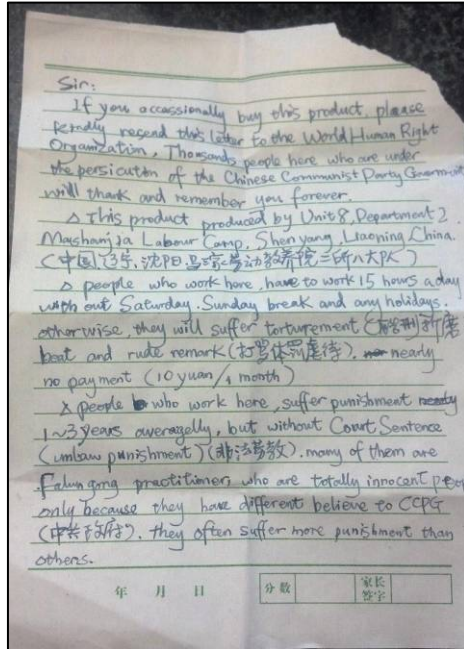 Sir:
If you occassionally buy this product, please
kindly resend this letter to the World Human Right
Organization, Thousands people here who are under
the persicution of the Chinese Communist Party Government
will thank and remember you forever.
△ This product produced by Unit 8, Department 2,
Mashanjia Labour Camp, Shenyang, Liaoning, China.
(中国,辽宁,沈阳,马家劳动教养院二所八大队)
△ people who work here, have to work 15 hours a day
with out Saturday, Sunday break and any holidays.
otherwise, they will suffer torturement (折磨
beat and rude remark (打骂体罚虐待). nearly
no payment (10 yuan/1 month)
△ people who work here, suffer punishment
1~3 years averagelly, but without Court Sentence
(unlaw punishment) (非法劳教). many of them are
Falun gong practitioner, who are totally innocent people
only because they have different believe to CCPG
(中共政府), they often suffer more punishment than
others.
年 月 日 分数 家长签字